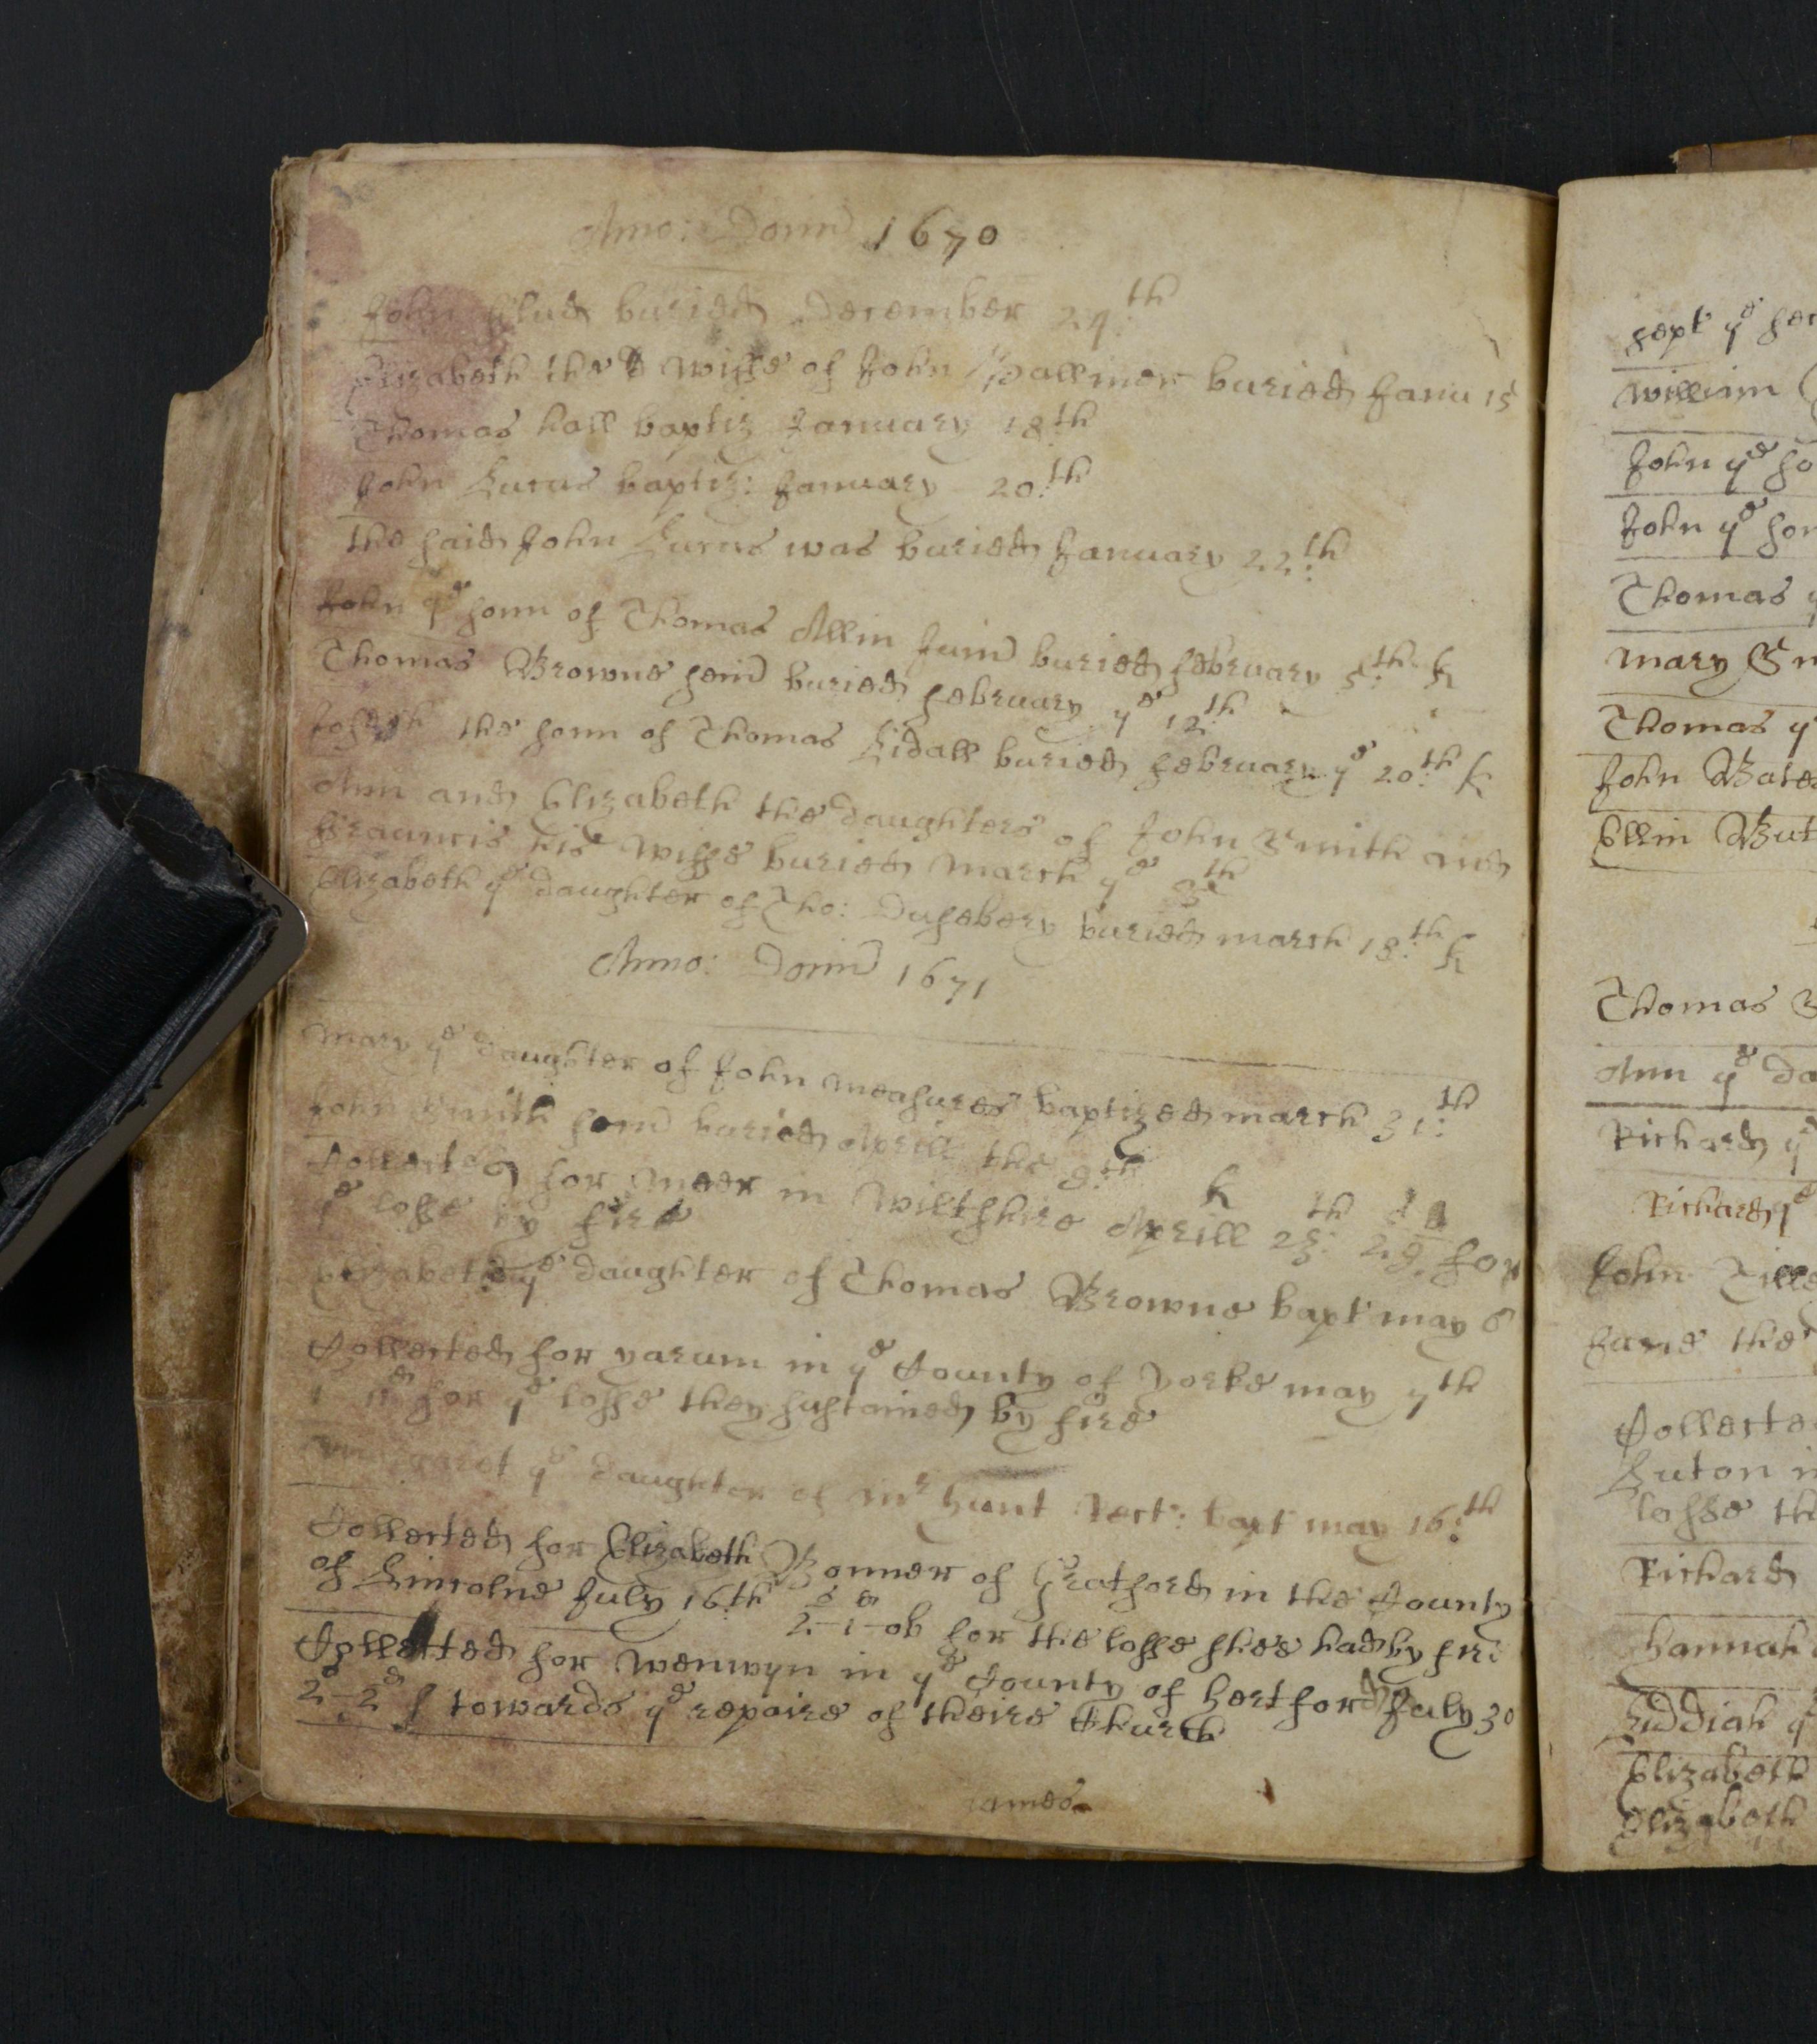 Anno: Domi 1670
John buried December 24th
Elizabeth the wiffe of John Pallmer buried Janu 15
Thomas hall baptiz January 18th
John Lucas baptiz: January 20th
the said John Lucas was buried January 22th
John ye sonn of Thomas Allin Juni buried february 5th
Thomas Browne seni buried february ye 12th
Joseph the sonn of Thomas Lidall buried february ye 20th
Ann and Elizabeth the daughters of John Smith and
ffrauncis his wiffe buried March ye 3th
Elizabeth ye daughter of Tho: Dusebery buried march 18th
Anno: Domi 1671
Mary ye daughter of John measures baptized march 31th
John Smith seni buried Aprill the 9th
Collected for Meer in Wiltshire Aprill 25th for
ye losse by fire
Elizabeth ye daughter of Thomas Browne bapt may 6
Collected for yarum in ye County of Yorke may 7th
for ye losse they sustained by fire
Margaret ye daughter of Mr hunt Rect: bapt may 16th
Collected for Elizabeth Bonner of Gratford in the County
of Lincolne July 16th 2s-1d-ob for the losse shee had by fri
Collected for Wenwyn in ye County of hertford July 30
2s-2d towards ye repaire of theire Church
James
sept ye
William
John ye so
John ye son
Thomas
Mary
Thomas y
John Bates
Ellin But
Thomas
Ann ye da
Richard y
Richard ye
John
Jane the
Collecte
Luton i
losse th
Richard
hannah
Liddiah y
Elizabeth
Elizabeth